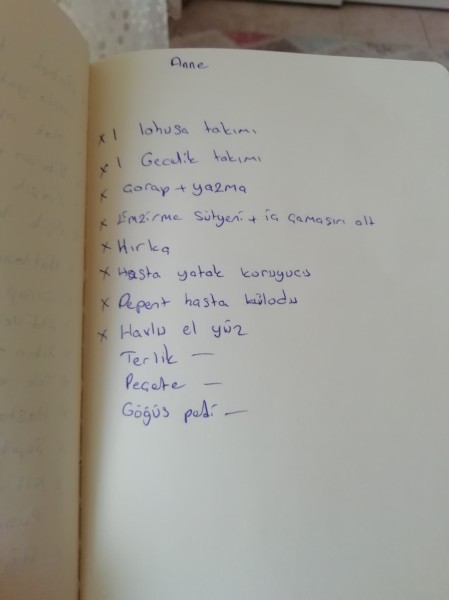 Anne
x 1 lohusa takımı
x 1 Gecelik takımı
x Çorap + yazma
x Emzirme sütyeni + iç çamaşırı alt
x Hırka
x Hasta yatak koruyucu
x Depent hasta külodu
x Havlu el yüz
Terlik —
Peçete —
Göğüs pedi —